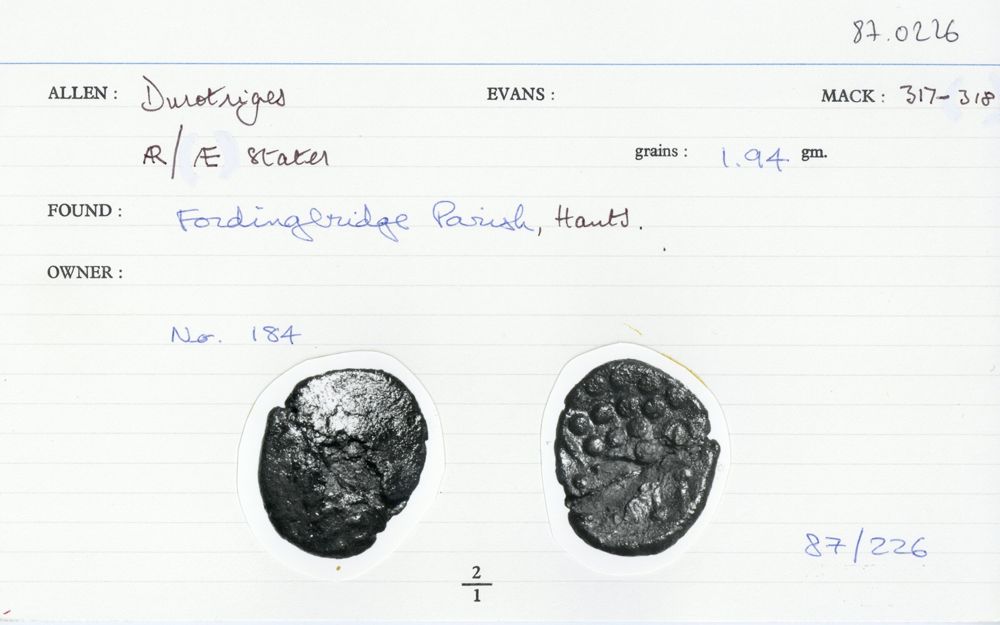 87.0226
ALLEN : Durotriges EVANS : MACK : 317-318
AR/Æ Stater grains : 1.94 gm.
FOUND : Fordingbridge Parish, Hants.
OWNER :
No. 184
87/226
2
1